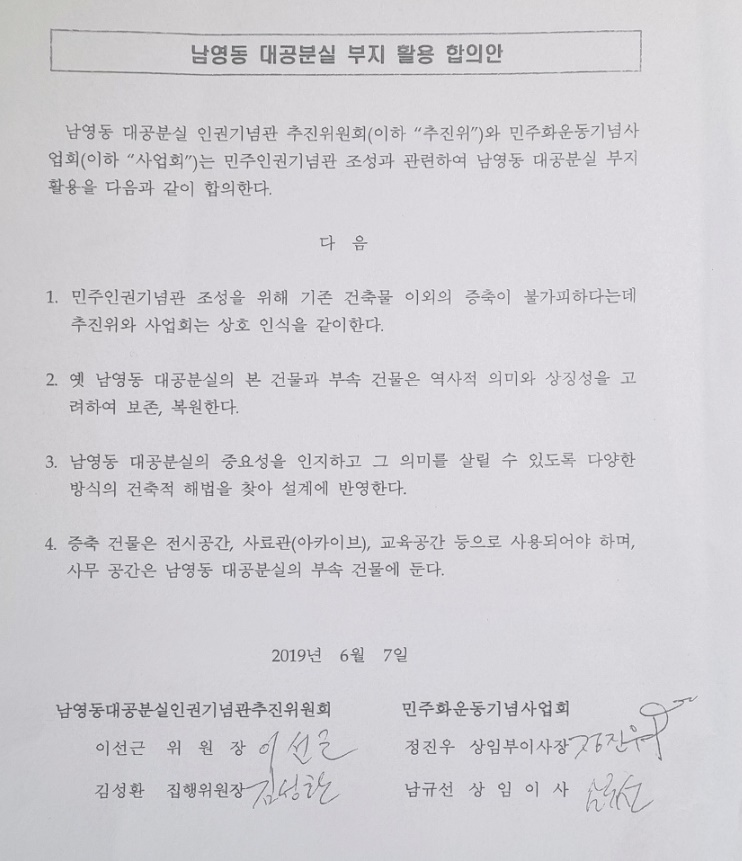 남영동 대공분실 부지 활용 합의안
남영동 대공분실 인권기념관 추진위원회(이하 “추진위”)와 민주화운동기념사
업회(이하 “사업회”)는 민주인권기념관 조성과 관련하여 남영동 대공분실 부지
활용을 다음과 같이 합의한다.
다 음
1. 민주인권기념관 조성을 위해 기존 건축물 이외의 증축이 불가피하다는데
추진위와 사업회는 상호 인식을 같이한다.
2. 옛 남영동 대공분실의 본 건물과 부속 건물은 역사적 의미와 상징성을 고
려하여 보존, 복원한다.
3. 남영동 대공분실의 중요성을 인지하고 그 의미를 살릴 수 있도록 다양한
방식의 건축적 해법을 찾아 설계에 반영한다.
4. 증축 건물은 전시공간, 사료관(아카이브), 교육공간 등으로 사용되어야 하며,
사무 공간은 남영동 대공분실의 부속 건물에 둔다.
2019년 6월 7일
남영동대공분실인권기념관추진위원회
이선근 위 원 장 이선근
김성환 집행위원장 김성환
민주화운동기념사업회
정진우 상임부이사장 정진우
남규선 상 임 이 사 남규선